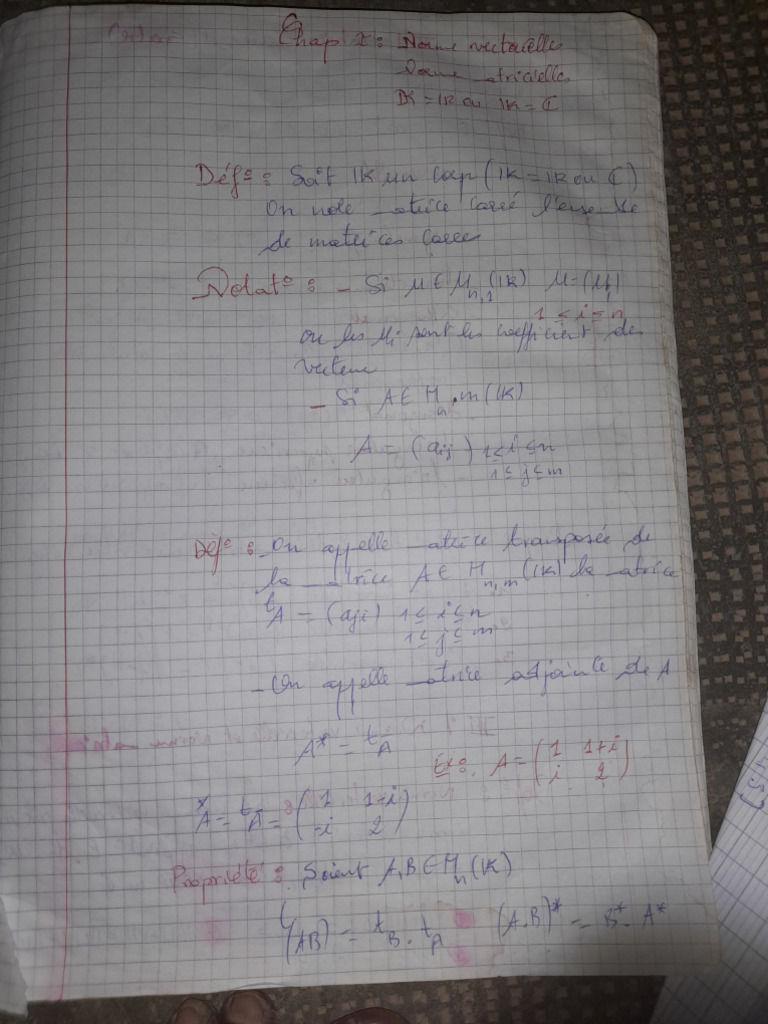 Chap I : Norme vectorielle
Norme _atricielle
IK = IR ou IK = ℂ
Déf° : Soit IK un corp (IK = IR ou ℂ)
On note _atrice carré l'ense_ble
de matrices carées
Notat° : - Si u ∈ M_{n,1}(IK) u = (u_i)
1 ≤ i ≤ n
ou les u_i sont les coefficient des
vecteur
- Si A ∈ M_{n,m}(IK)
A = (aij) 1≤i≤n
1≤j≤m
Déf° : On appelle _atrice transposée de
la _atrice A ∈ M_{n,m}(IK) la _atrice
ᵗA = (aji) 1≤i≤n
1≤j≤m
- On appelle _atrice adjointe de A
A* = ᵗA̅
Ex: A = (1 1+i
i 2)
*A = ᵗA̅ = (1 1-i
-i 2)
Propriété : Soient A,B ∈ M_n(IK)
ᵗ(AB) = ᵗB . ᵗA (A.B)* = B* . A*